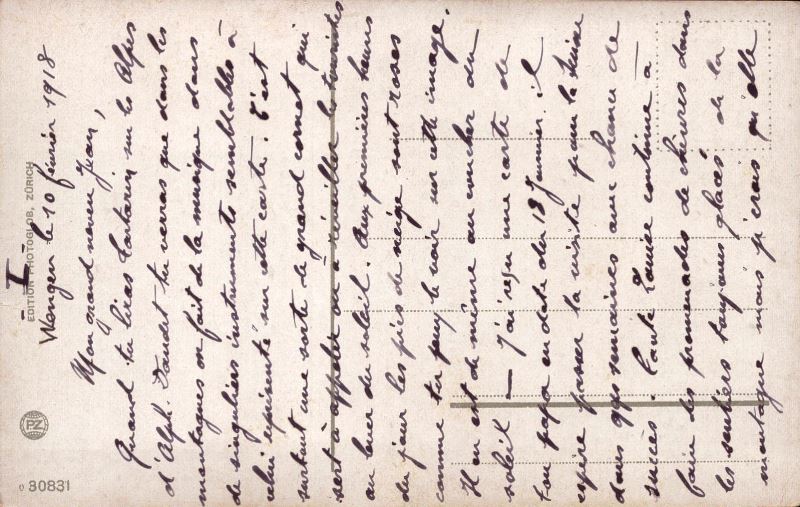 I
Wengen le 10 février 1918
Mon grand neveu Jean,
Quand tu liras Tartarin sur les Alpes
d'Alph. Daudet tu verras que dans les
montagnes on fait de la musique dans
de singuliers instruments semblables à
celui représenté sur cette carte. C'est
surtout une sorte de grand cornet qui
sert à appeler ou à réveiller les touristes
au lever du soleil. Aux premières heures
du jour les pics de neige sont roses
comme tu peux le voir sur cette image.
Il en est de même au coucher du
soleil — J'ai reçu une carte de
ton papa en date du 13 Janvier. il
espère passer la visite pour la Suisse
dans qqes semaines avec chance de
succès. Tante Louise continue à
faire des promenades de chèvres dans
les sentiers toujours glacés de la
montagne mais je crois qu'elle
EDITION PHOTOGLOB, ZÜRICH
PZ
30831